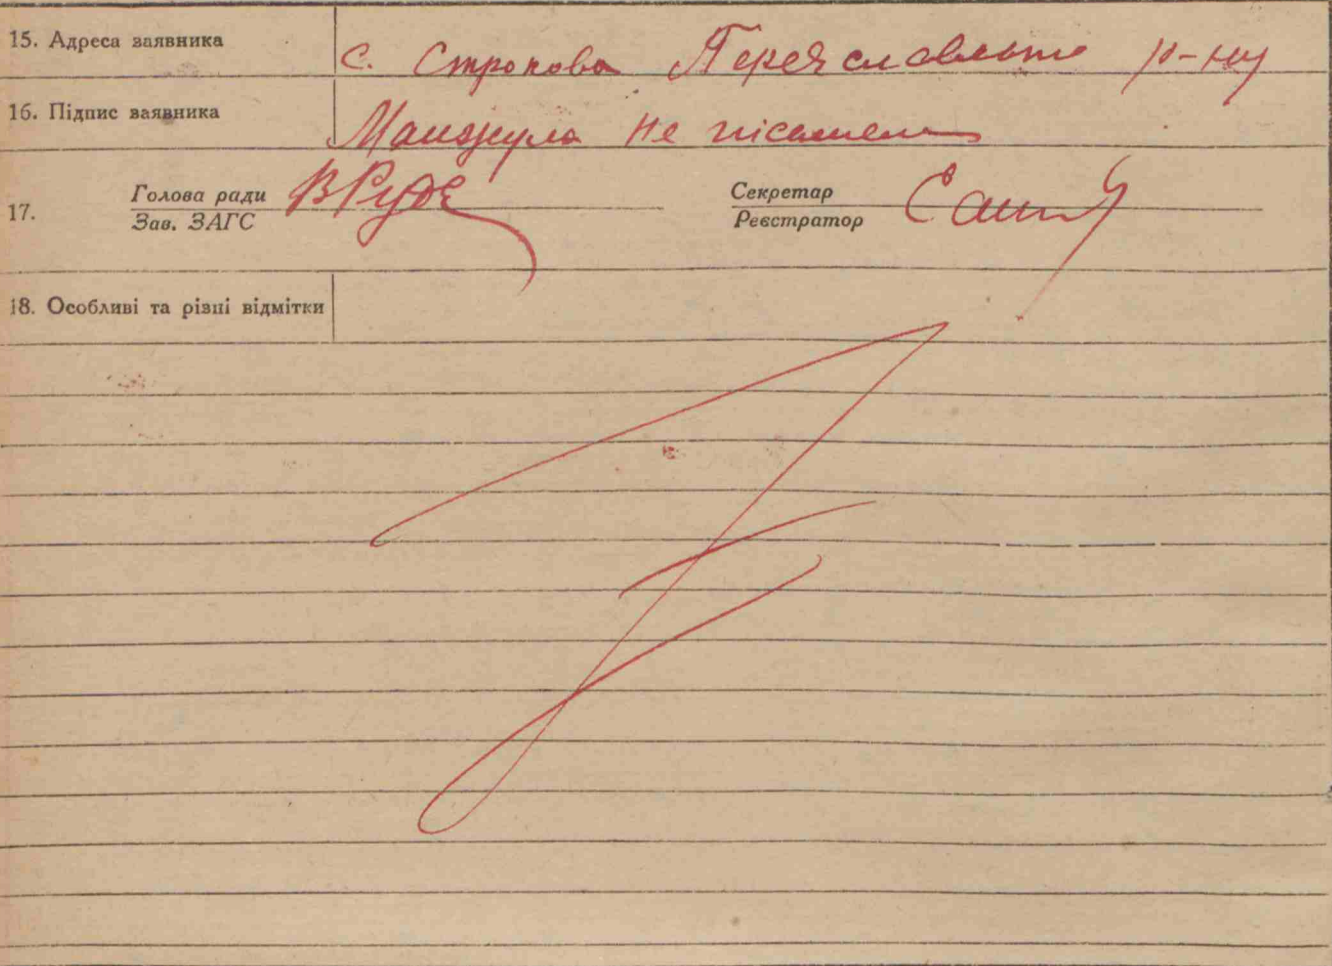 15. Адреса заявника с. Строкова Переяславського р-ну
16. Підпис заявника Манжула не пісьмена
17. Голова ради Секретар
Зав. ЗАГС Реєстратор
18. Особливі та різні відмітки